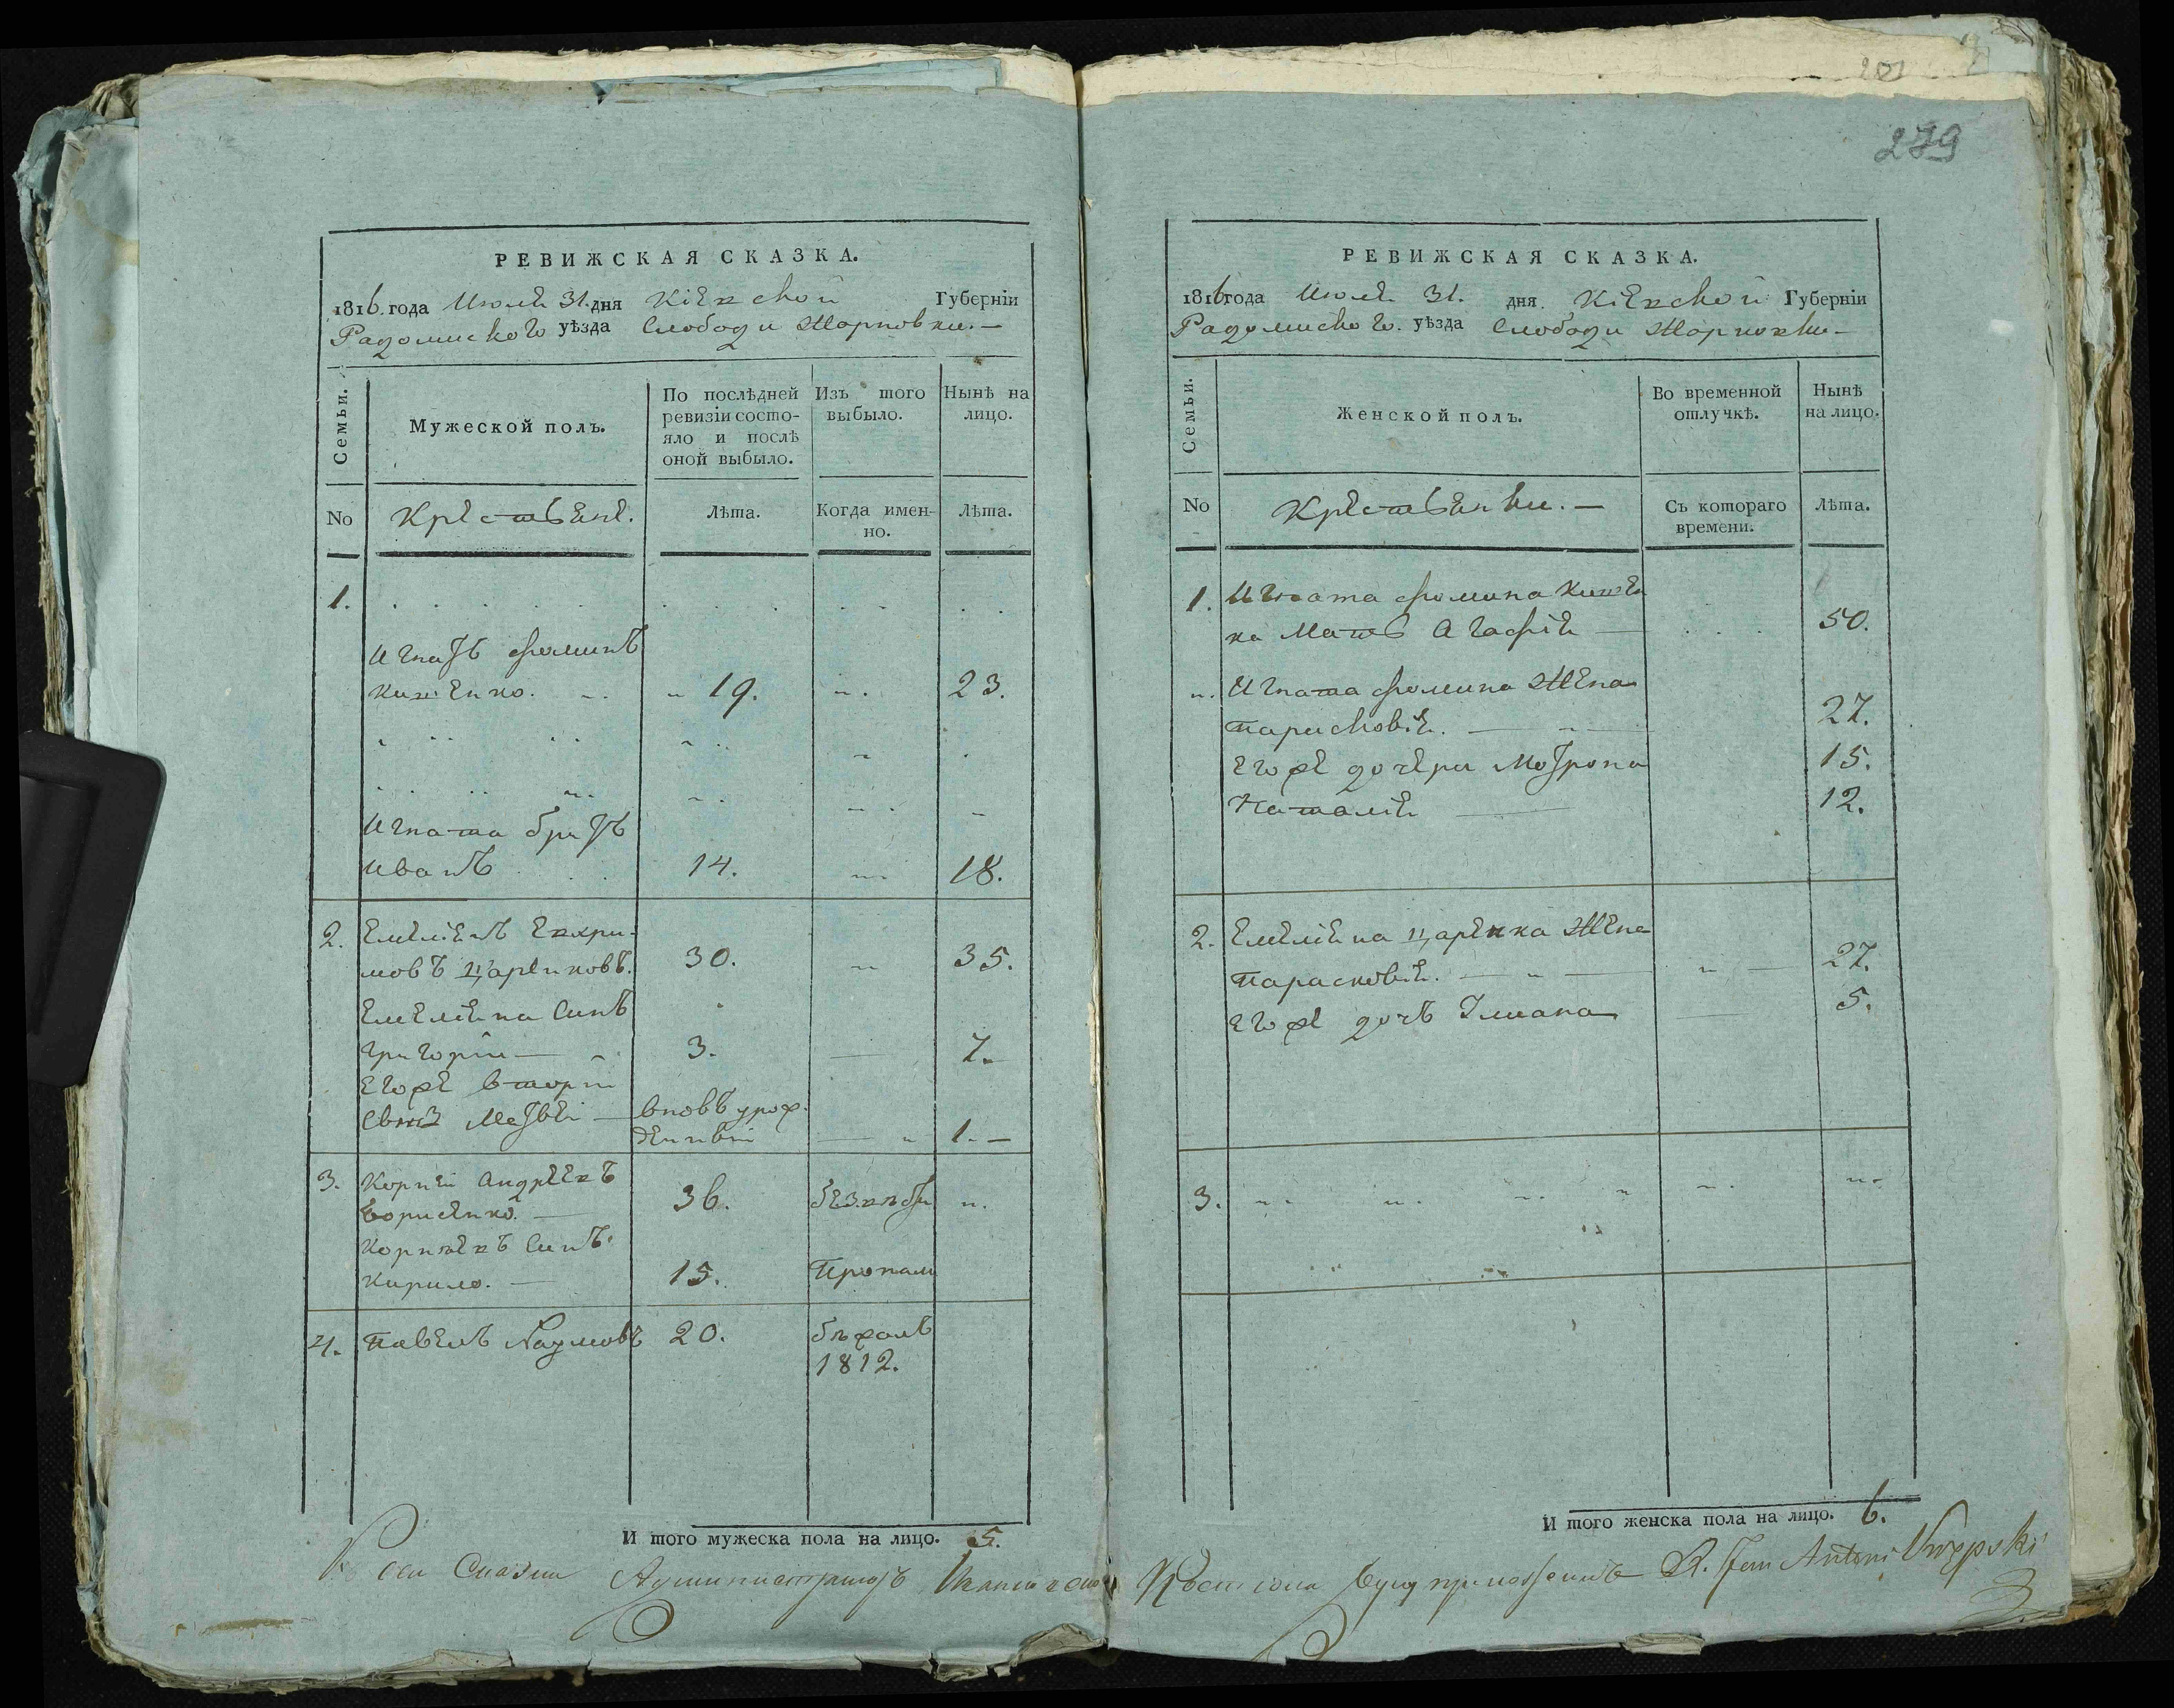 279
РЕВИЖСКАЯ СКАЗКА.
1816. года Июля 31. дня Кіевской Губерніи
Радомиского уѣзда Слободи Марповки. —
Семьи.
Мужеской полъ.
По послѣдней ревизіи состояло и послѣ оной выбыло.
Изъ того выбыло.
Нынѣ на лицо.
No
Крестьяне.
Лѣта.
Когда именно.
Лѣта.
1.
Игнатъ Фоминъ
Кизенко. 19. 23.
Игната братъ
Иванъ 14. 18.
2. Емеліянъ Евхри-
мовъ Царенковъ. 30. 35.
Емеліяна Синъ
Григорій — 3. 7.
Егоже вторій
Синъ Матвей — вновь урож-
денный 1. —
3. Корній Андреевъ
Борисенко. — 36. безъ вѣсти
Корніевъ Синъ
Кирило. — 15. Пропали
4. Павелъ Наумовъ 20. бѣжалъ
1812.
И того мужеска пола на лицо. 5.
РЕВИЖСКАЯ СКАЗКА.
1816 года Июля 31. дня Кіевской Губерніи
Радомиского. уѣзда Слободи Марповки —
Семьи.
Женской полъ.
Во временной отлучкѣ.
Нынѣ на лицо.
No
Крестьянки. —
Съ котораго времени.
Лѣта.
1. Игната Фомина Кизен
ка Мать Агафія — 50.
Игната Фомина Жена
Парасковія. — 27.
Егоже дочери Мотрона 15.
Наталія — 12.
2. Емеліяна Царенка Жена
Парасковія. — 27.
Егоже дочъ Уліана 5.
3.
И того женска пола на лицо. 6.
К сей Сказки Администраторъ
X. Jan Antoni